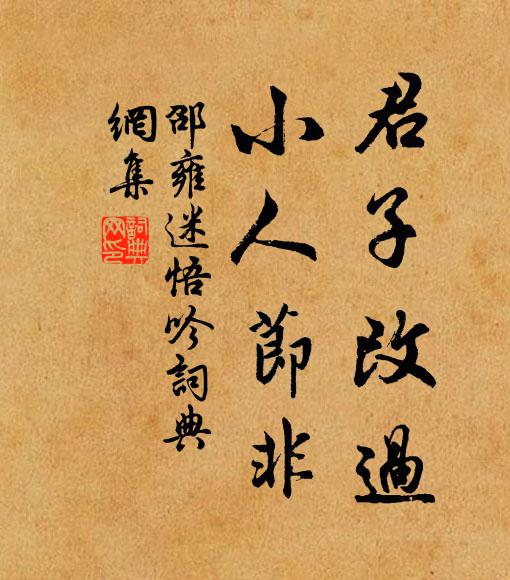 君子改過
小人節非
邵雍迷悟吟詞典
網集
詞典
网印